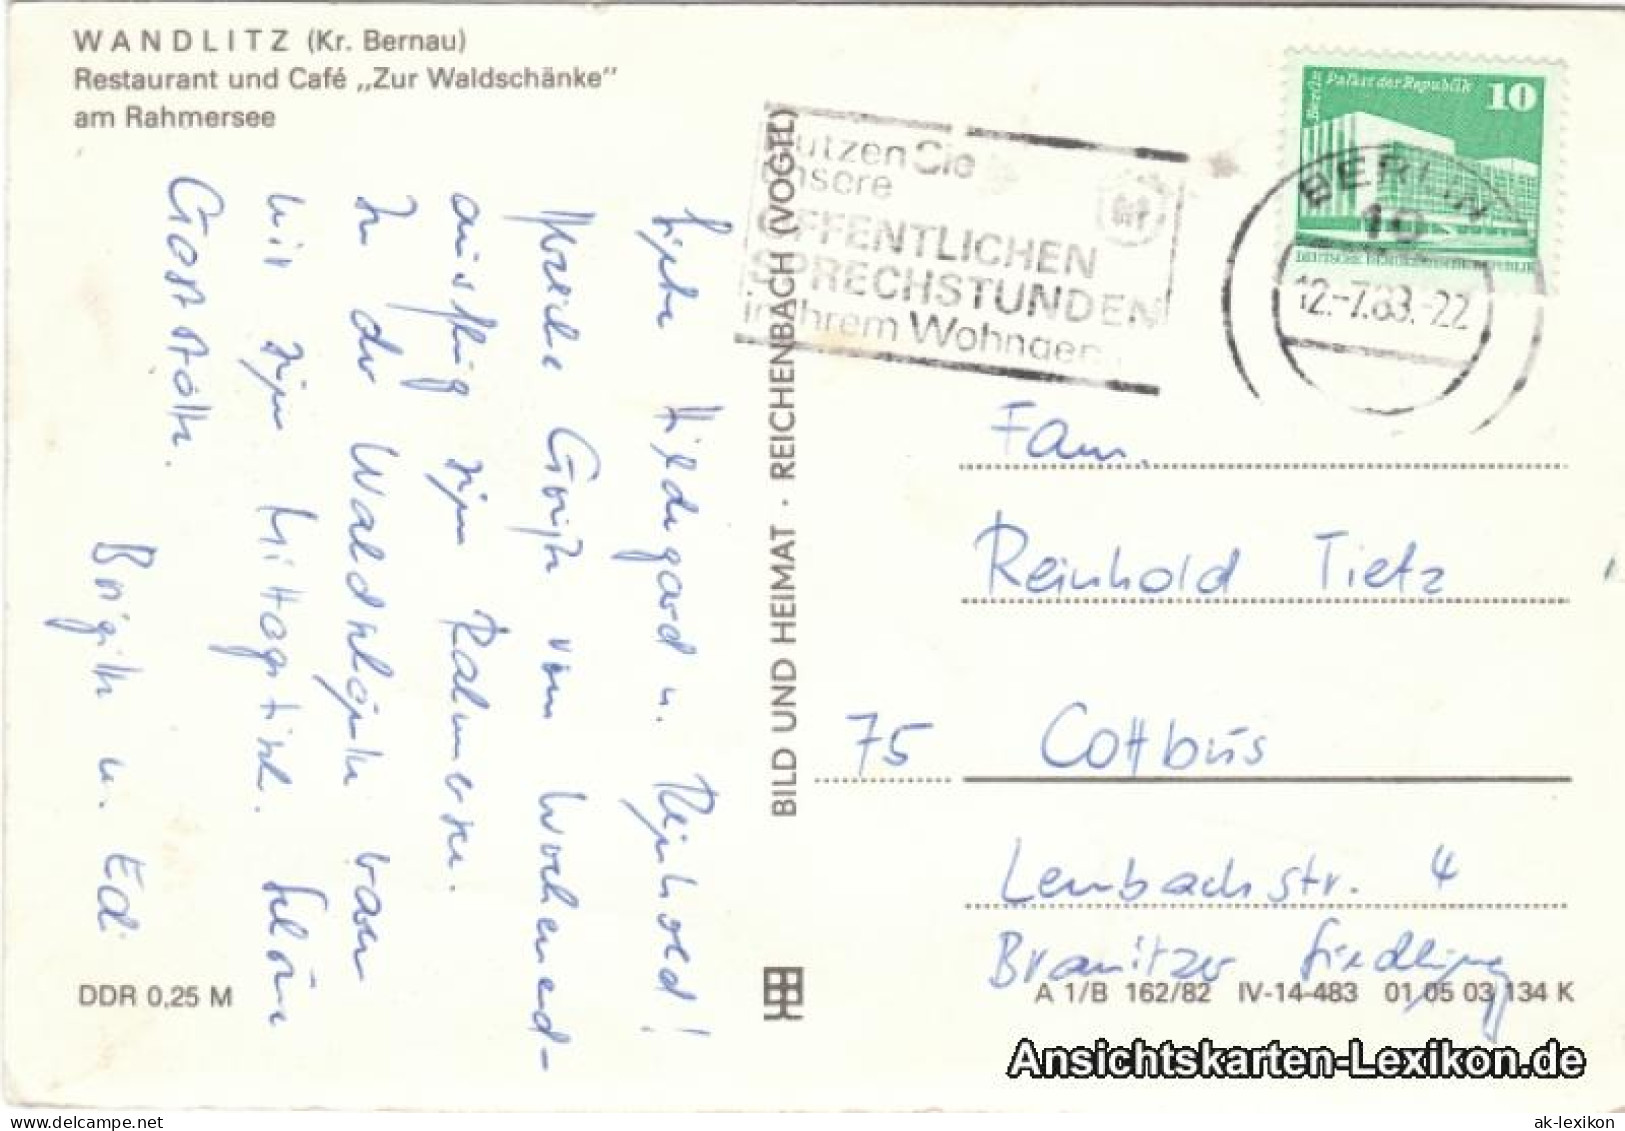 WANDLITZ (Kr. Bernau)
Restaurant und Café „Zur Waldschänke"
am Rahmersee
Liebe Hildegard u. Reinhold!
Herzliche Grüße vom Wochenend-
ausflug zum Rahmersee.
In der Waldschänke waren
wir zum Mittagstisch. Schöne
Gaststätte.
Brigitte u. Edi
DDR 0,25 M
BILD UND HEIMAT · REICHENBACH (VOGTL)
Nutzen Sie
unsere
ÖFFENTLICHEN
SPRECHSTUNDEN
in Ihrem Wohngeb
Berlin Palast der Republik 10
DEUTSCHE DEMOKRATISCHE REPUBLIK
BERLIN
10
12.-7.83.-22
Fam.
Reinhold Tietz
75 Cottbus
Lenbachstr. 4
Branitzer Siedlung
A 1/B 162/82 IV-14-483 01 05 03 134 K
Ansichtskarten-Lexikon.de
delcampe.net
ak-lexikon